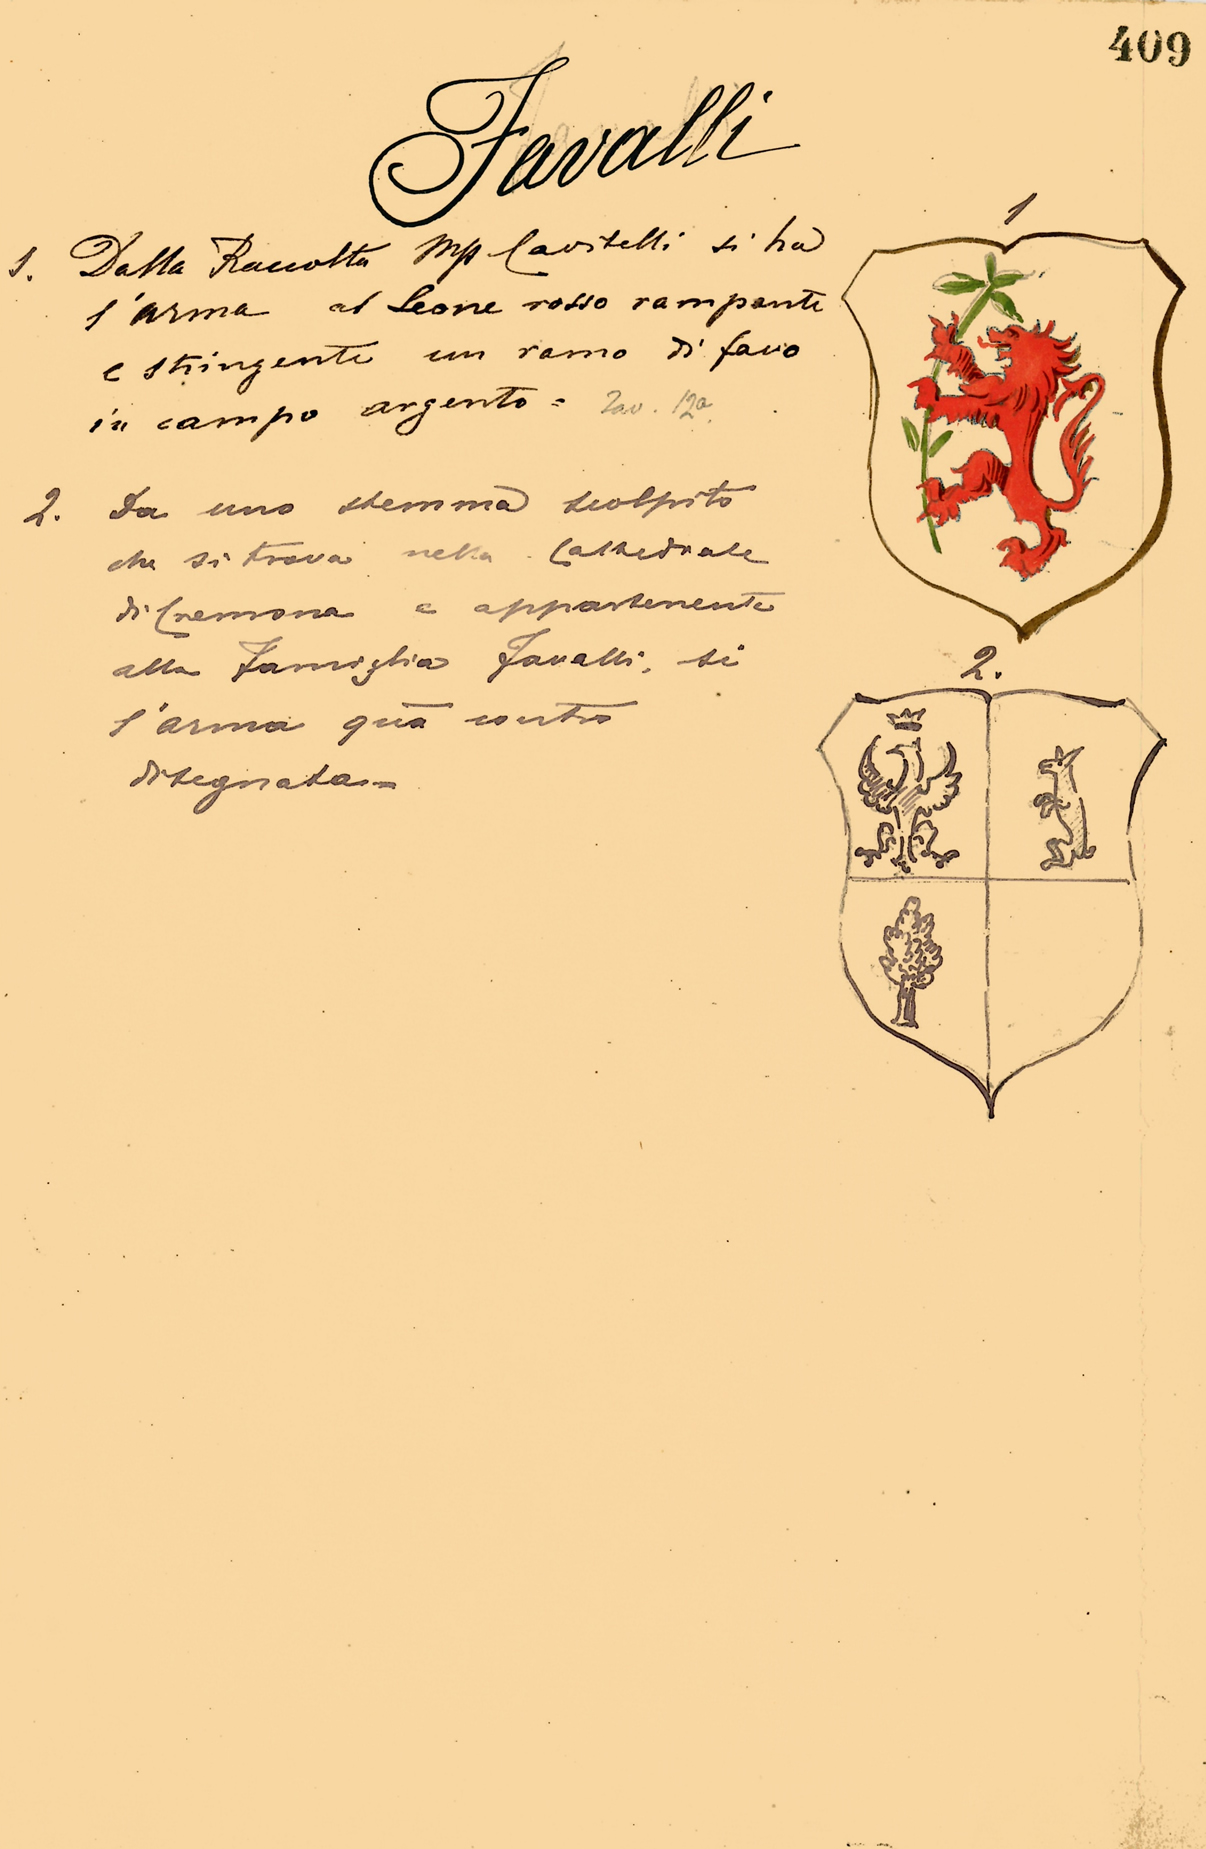 409
Favalli
1
1. Dalla Raccolta Mp Cavitelli si ha
l'arma al Leone rosso rampante
e stringente un ramo di favo
in campo argento = Tav. 12a.
2. Da uno stemma scolpito
che si trova nella Cattedrale
di Cremona e appartenente
alla Famiglia Favalli, si
l'arma quà contro
disegnata =
2.